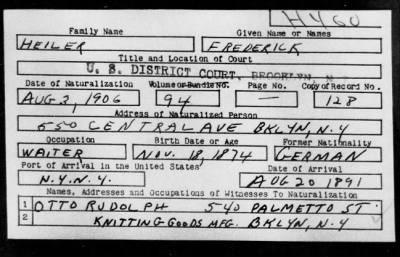 H460
Family Name Given Name or Names
HEILER FREDERICK
Title and Location of Court
U. S. DISTRICT COURT, BROOKLYN, N.Y.
Date of Naturalization Volume or Bundle No. Page No. Copy of Record No.
AUG 3, 1906 94 — 128
Address of Naturalized Person
550 CENTRAL AVE BKLYN, N.Y
Occupation Birth Date or Age Former Nationality
WAITER NOV. 18, 1874 GERMAN
Port of Arrival in the United States Date of Arrival
N.Y. N.Y. AUG 20 1891
Names, Addresses and Occupations of Witnesses To Naturalization
1 OTTO RUDOLPH 540 PALMETTO ST.
2 KNITTING GOODS MFG. BKLYN, N.Y